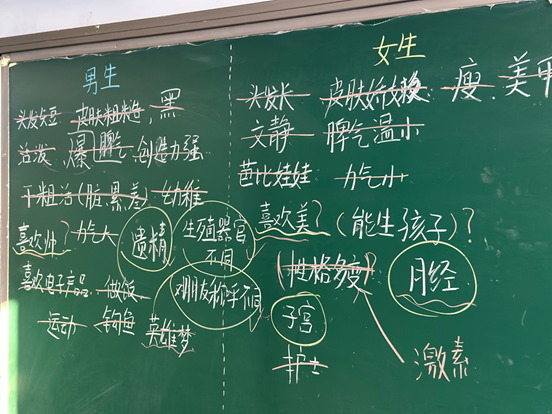 男生
头发短 皮肤粗糙 黑
活泼 爆脾气 创造力强
干粗活(脏、累、差) 幼稚
喜欢帅? 力气大 遗精 生殖器官不同
喜欢电子产品 做饭 对朋友称呼不同
运动 钓鱼 英雄梦
女生
头发长 皮肤娇嫩 瘦 美
文静 脾气温小
芭比娃娃 力气小
喜欢美? (能生孩子)?
(性格多变?) 月经
子宫
护士 激素